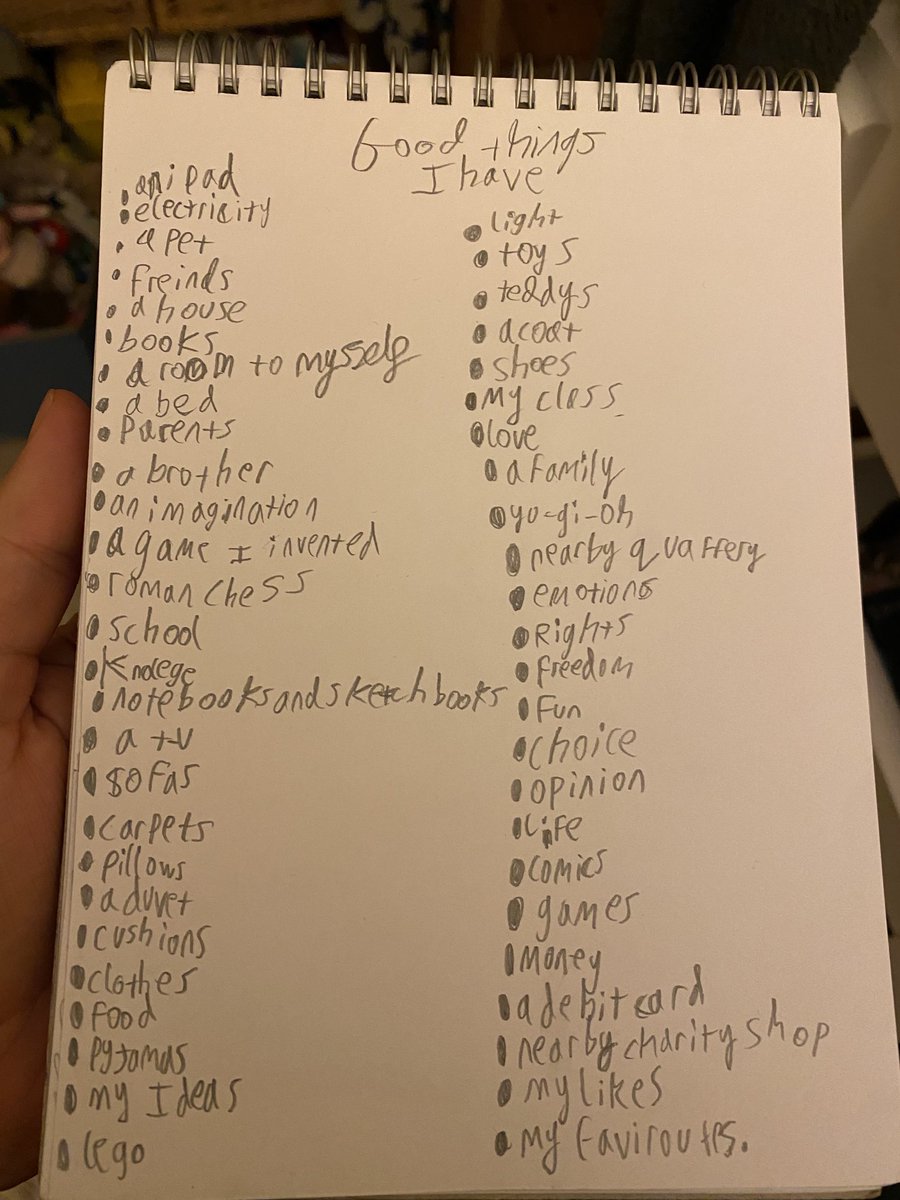 Good things
I have
• an ipad
• electricity
• a pet
• freinds
• a house
• books
• a room to mysself
• a bed
• Parents
• a brother
• an imagination
• a game I invented
• roman chess
• school
• Knolege
• notebooks and sketchbooks
• a tv
• sofas
• carpets
• pillows
• a duvet
• cushions
• clothes
• food
• pyjamas
• my Ideas
• lego
• light
• toys
• teddys
• a coat
• shoes
• My class
• love
• a family
• yu-gi-oh
• nearby quarrery
• emotions
• Rights
• freedom
• Fun
• choice
• opinion
• life
• comics
• games
• money
• a debit card
• nearby charity shop
• my likes
• my faviroutes.